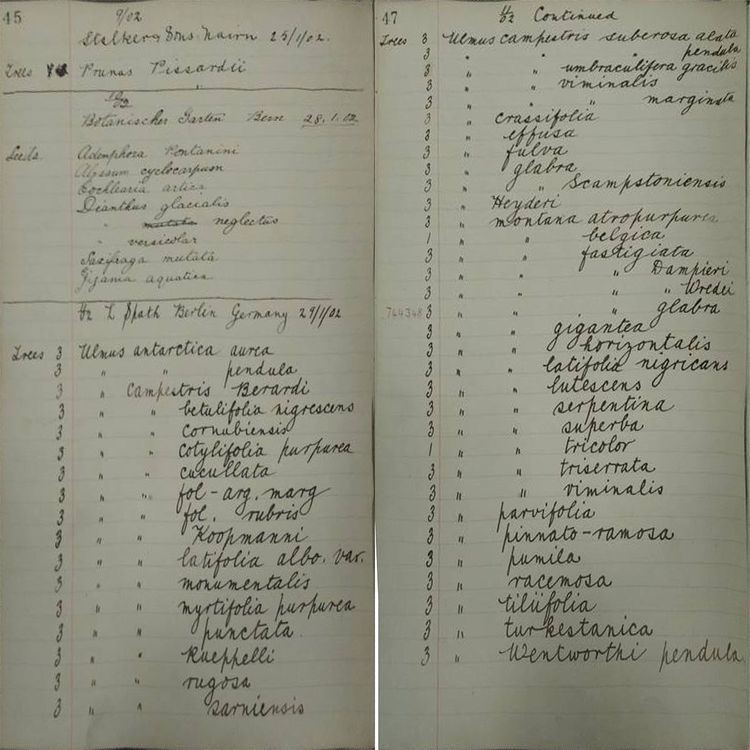 45
9/02
Stalker & Sons Nairn 25/1/02.
Trees Prunus Pissardii
10/02
Botanischer Garten Bern 28.1.02
Seeds Adenophora Pontanini
Alyssum cyclocarpum
Cochlearia artica
Dianthus glacialis
" mutata neglectus
" versicolar
Saxifraga mutata
aquatica
L Späth Berlin Germany 29/1/02
Trees 3 Ulmus antarctica aurea
3 " " pendula
3 " campestris Berardi
3 " " betulifolia nigrescens
3 " " cornubiensis
3 " " cotylifolia purpurea
3 " " cucullata
3 " " fol-arg. marg
3 " " fol. rubris
3 " " Koopmanni
3 " " latifolia albo. var.
3 " " monumentalis
3 " " myrtifolia purpurea
3 " " punctata
3 " " Rueppelli
3 " " rugosa
3 " " sarniensis
47
Continued
Trees 3 Ulmus campestris suberosa alata
3 " " " pendula
3 " " umbraculifera gracilis
3 " " viminalis
3 " " " marginata
3 " crassifolia
3 " effusa
3 " fulva
3 " glabra
3 " " Scampstoniensis
3 " Heyderi
3 " montana atropurpurea
1 " " belgica
3 " " fastigiata
3 " " " Dampieri
3 " " " " Wredei
764348 3 " " glabra
3 " " gigantea
3 " " horizontalis
3 " " latifolia nigricans
3 " " lutescens
3 " " serpentina
3 " " superba
1 " " tricolor
3 " " triserrata
3 " " viminalis
3 " parvifolia
3 " pinnato-ramosa
3 " pumila
3 " racemosa
3 " tiliifolia
3 " turkestanica
3 " Wentworthi pendula